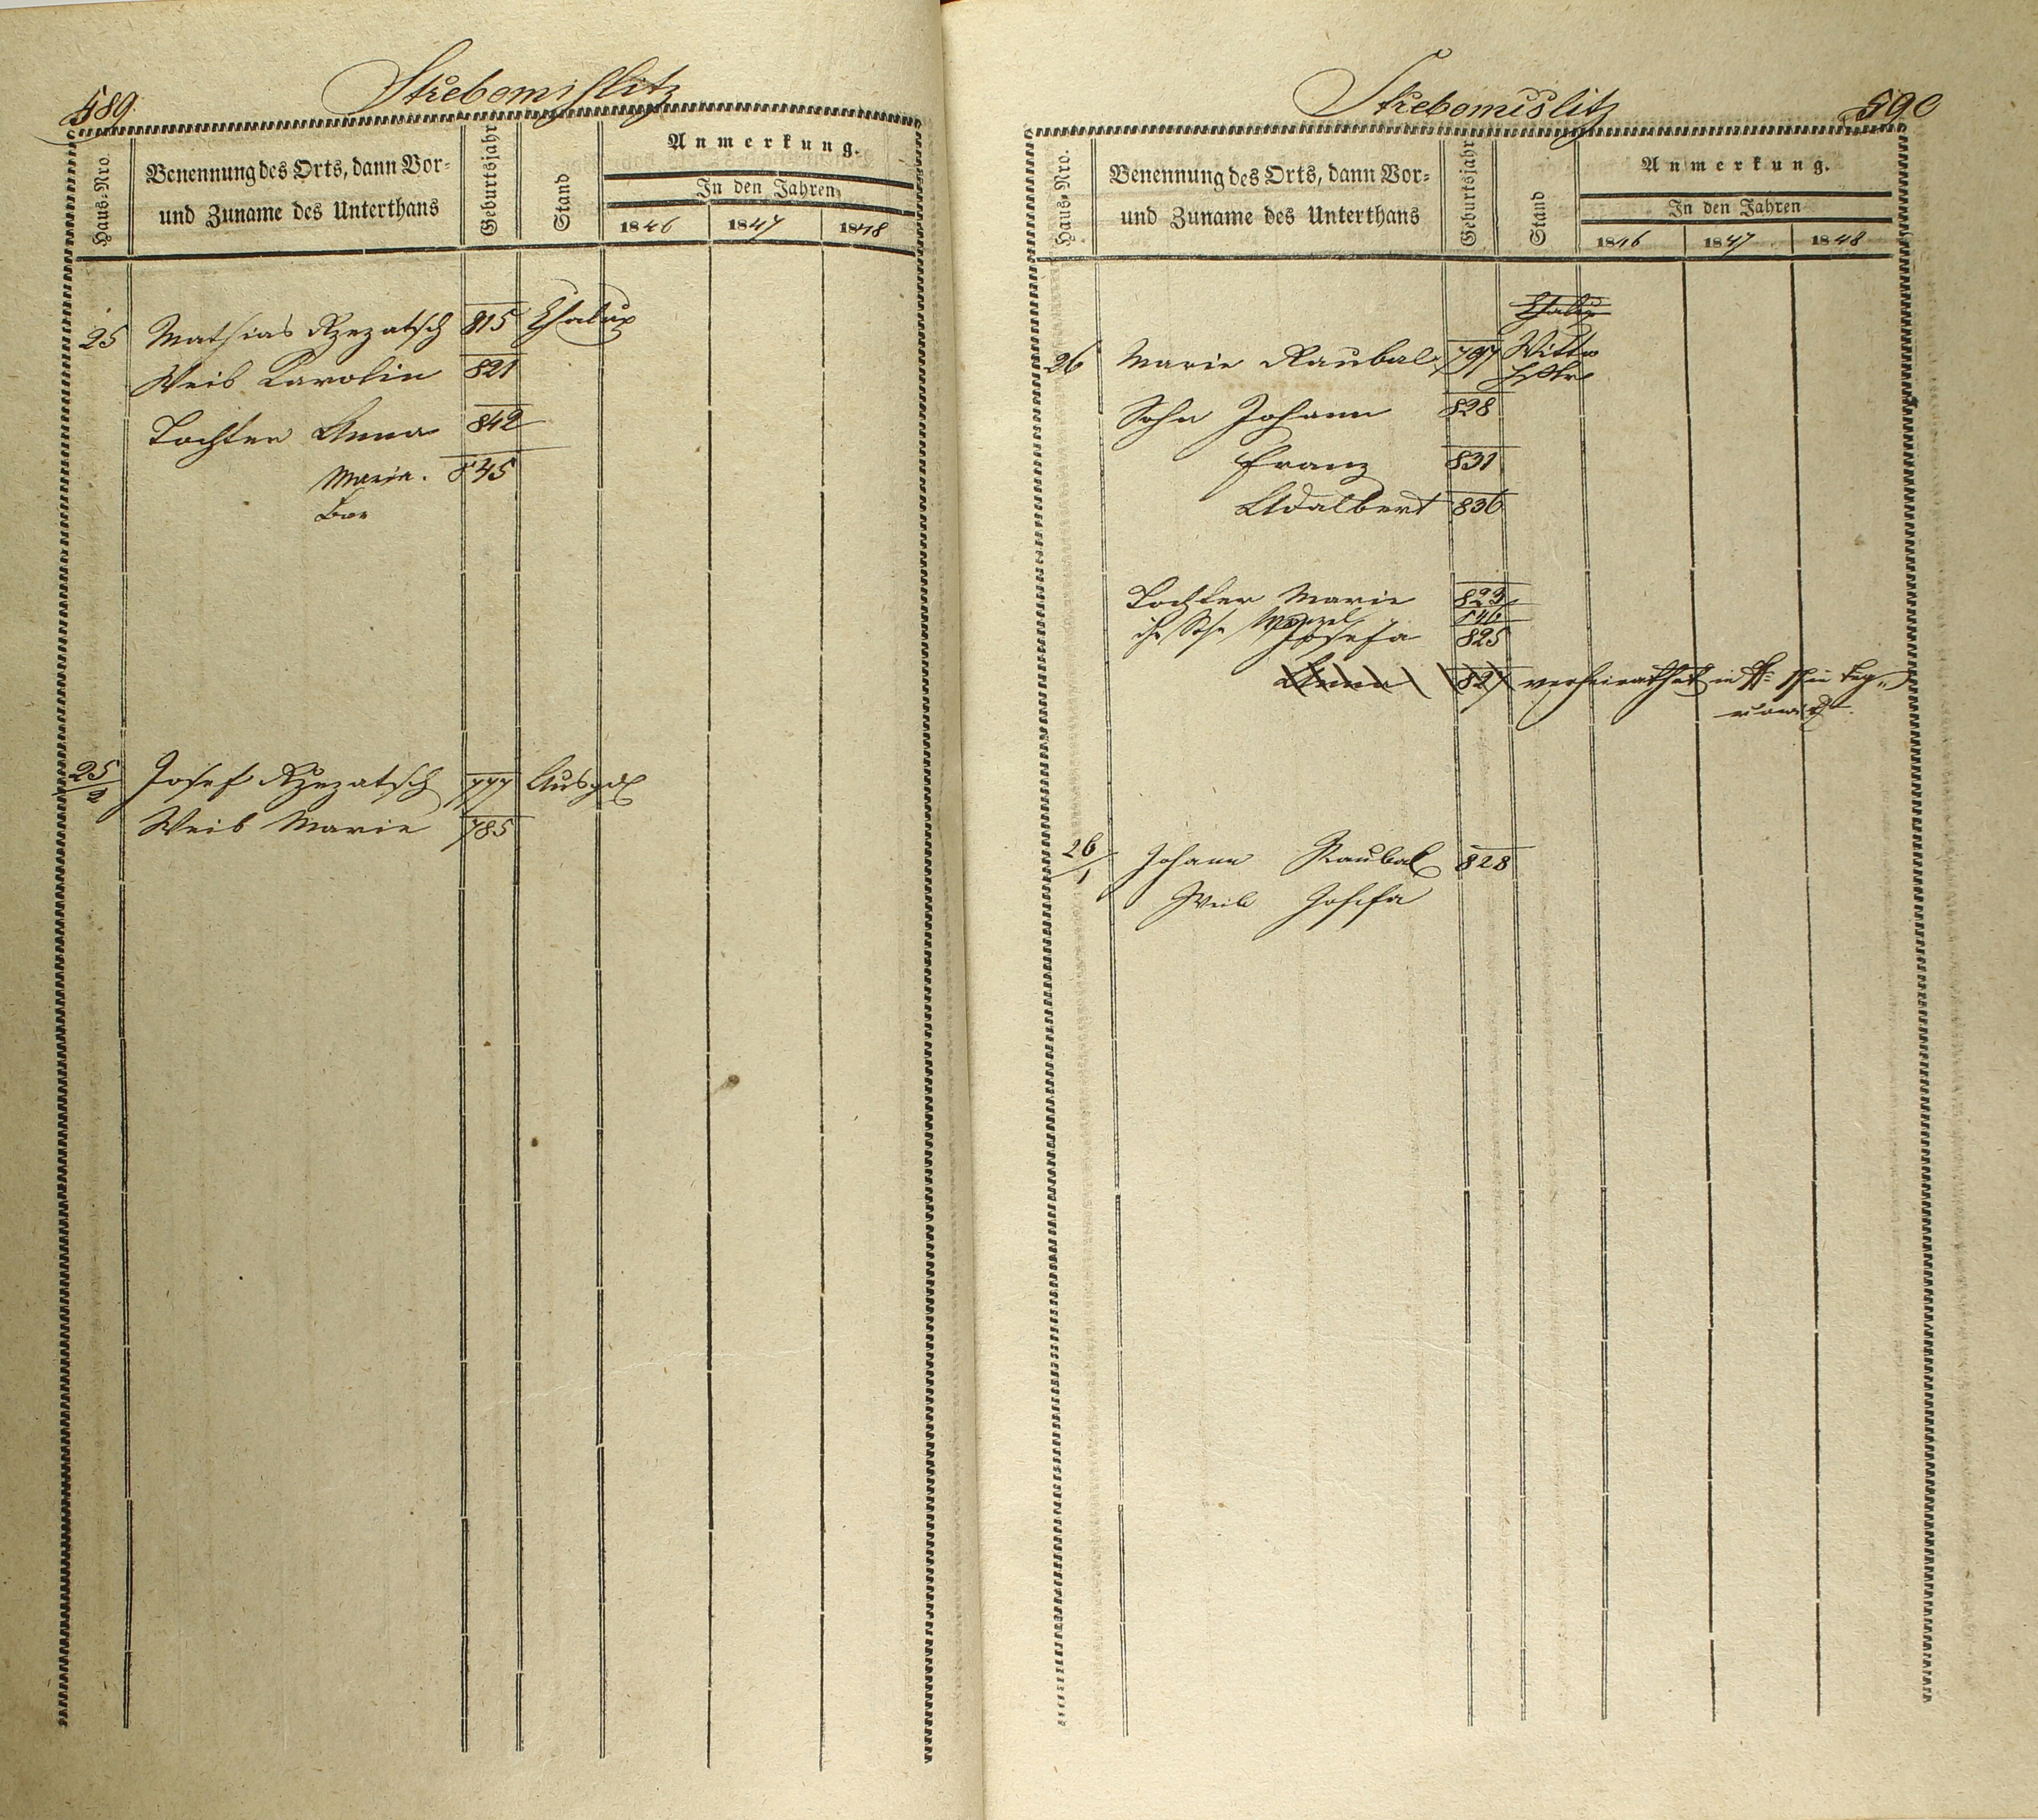 589.
Střebomislitz
Haus-Nro.
Benennung des Orts, dann Vor-
und Zuname des Unterthans
Geburtsjahr
Stand
Anmerkung.
In den Jahren
1846 1847 1848
25 Mathias Rzezatsch 815 Chalup
Weib Karolin 821
Tochter Anna 842
Maria. 845
25/1 Josef Rzezatsch 777 Ausgd
Weib Marie 785
Střebomislitz
590
Haus-Nro.
Benennung des Orts, dann Vor-
und Zuname des Unterthans
Geburtsjahr
Stand
Anmerkung.
In den Jahren
1846 1847 1848
Chalup
26 Marie Raubal 797 Wittw
Sohn Johann 828
Franz 831
Adalbert 836
Tochter Marie 823
ihr Sohn Wenzel 846
Josefa 825
Anna 827 verheirathet in
26/1 Johann Raubal 828
Weib Josefa